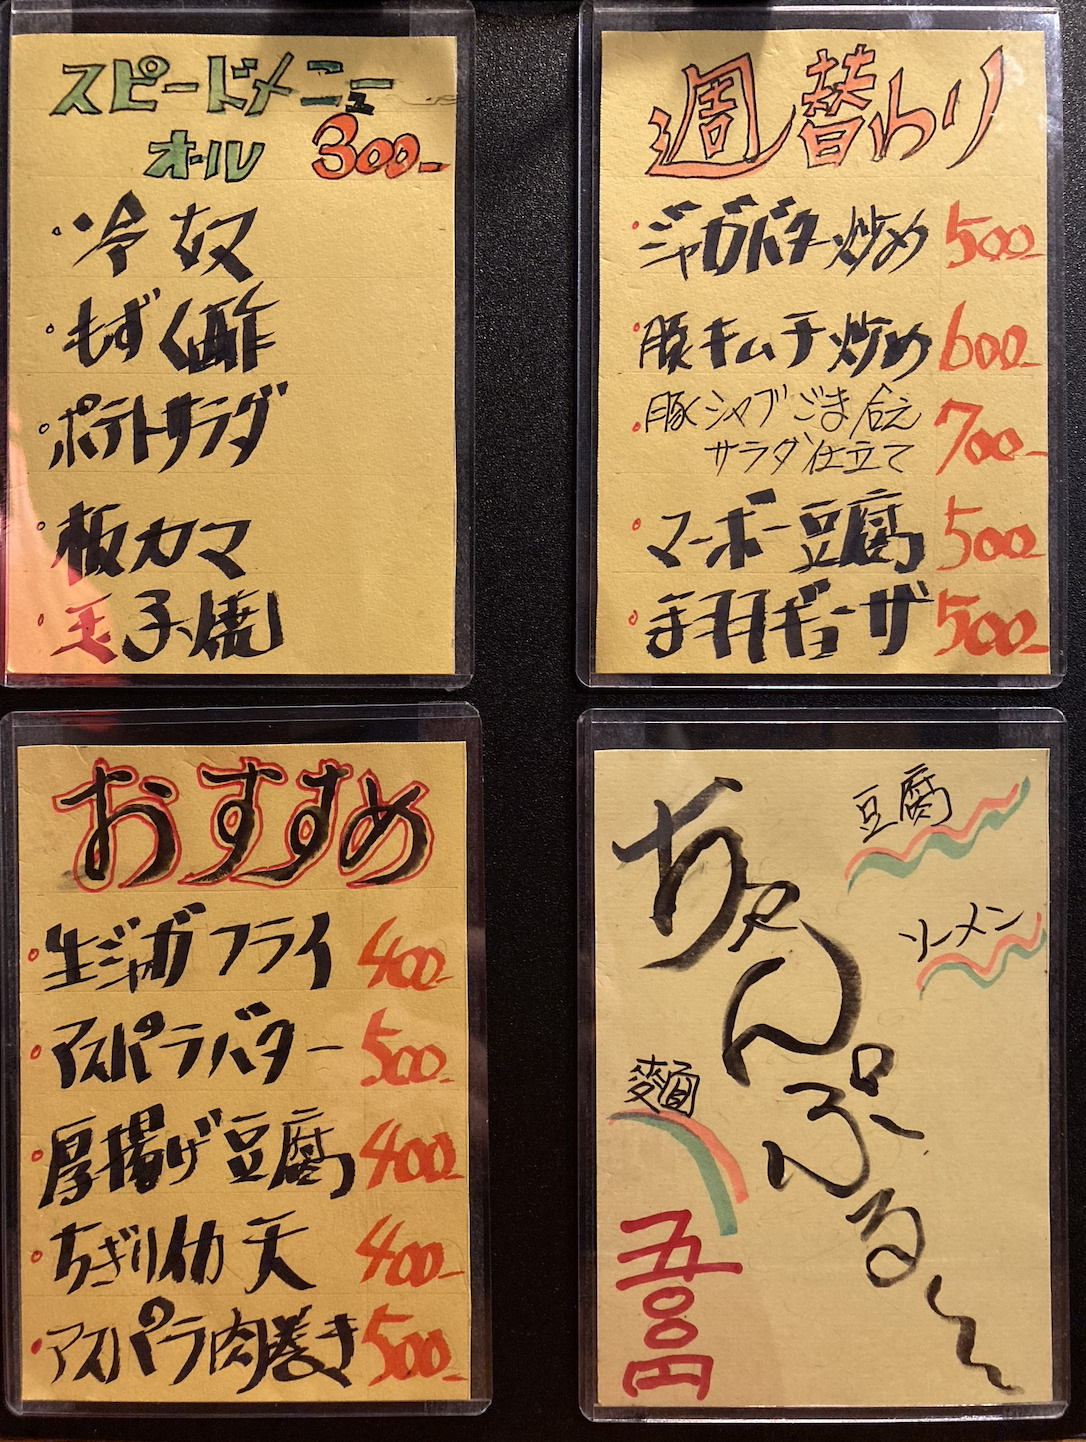 スピードメニュー
オール 300-
冷奴
もずく酢
ポテトサラダ
板カマ
玉子焼
週替わり
ジャガバター炒め 500-
豚キムチ炒め 600-
豚シャブごま合え
サラダ仕立て 700-
マーボー豆腐 500-
手羽ギョーザ 500-
おすすめ
生ジャガフライ 400-
アスパラバター 500-
厚揚げ豆腐 400-
ちぎりイカ天 400-
アスパラ肉巻き 500-
ちゃんぷるー
豆腐
ソーメン
麺
五〇〇円